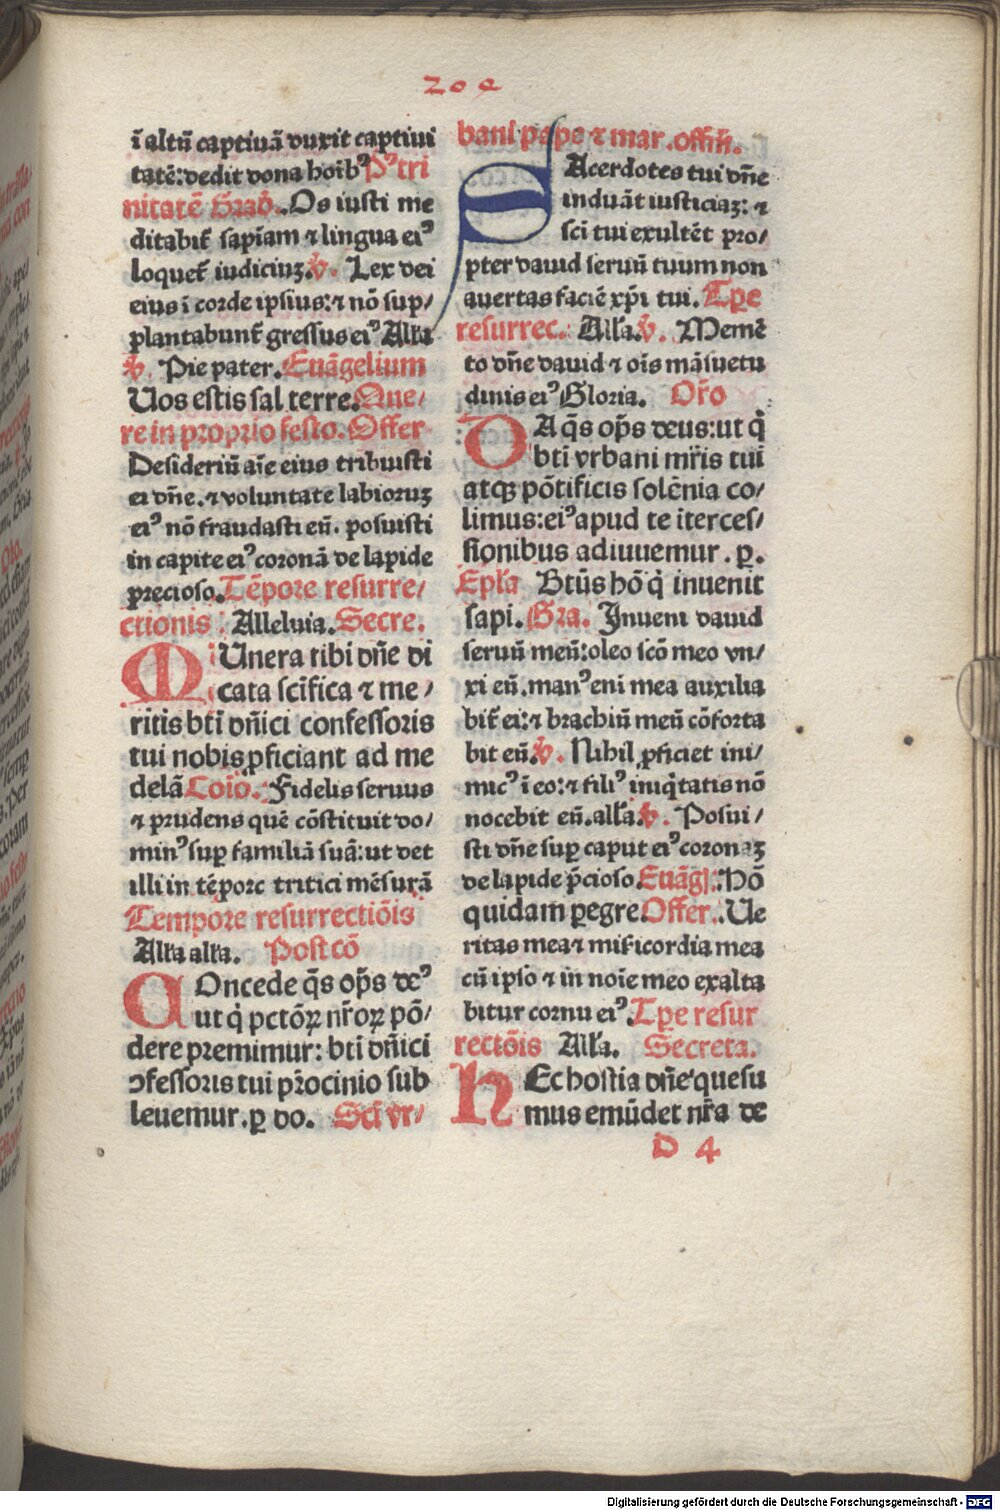 209
ī altū captiuā duxit captiui
tatē: dedit dona hoībꝰ Pꝰ tri
nitatē Grad. Os iusti me
ditabit̄ sapīam ⁊ lingua eiꝰ
loquet̄ iudiciuꝫ. ℣. Lex dei
eius ī corde ipsius: ⁊ nō sup/
plantabunt̄ gressus eiꝰ Allā
℣. Pie pater. Euāgelium
Uos estis sal terre. Que/
re in proprio festo. Offer
Desideriū aīe eius tribuisti
ei dn̄e. ⁊ voluntate labioruꝫ
eiꝰ nō fraudasti eū. posuisti
in capite eiꝰ coronā de lapide
p̄recioso. Tēpore resurre/
ctionis: Alleluia. Secre.
MUnera tibi dn̄e di
cata sc̄ifica ⁊ me/
ritis bt̄i dn̄ici confessoris
tui nobis ꝓficiant ad me
delā Coīo. Fidelis seruus
⁊ prudens quē cōstituit do/
minꝰ suꝑ familiā suā: ut det
illi in tēpore tritici mēsurā
Tempore resurrectiōis
Allā allā. Postcō
COncede q̄s op̄s deꝰ
ut q̄ pctōꝝ nr̄oꝝ pō/
dere premimur: bt̄i dn̄ici
ↄfessoris tui pr̄ocinio sub
leuemur. ꝑ do. Sc̄i vr/
bani pape ⁊ mar. offm̄.
SAcerdotes tui dn̄e
induāt iusticiaꝫ: ⁊
sc̄i tui exultēt pro/
pter dauid seruū tuum non
auertas faciē xp̄i tui. Tp̄e
resurrec. Allā. ℣. Memē
to dn̄e dauid ⁊ oīs māsuetu
dinis eiꝰ Gloria. Orō
DA q̄s op̄s deus: ut q̄
bt̄i vrbani mr̄is tui
atqꝫ pōtificis solēnia co/
limus: eiꝰ apud te iterces/
sionibus adiuuemur. ꝑ.
Epl̄a Bt̄us hō q̄ inuenit
sapi. Gra. Inueni dauid
seruū meū: oleo scō meo vn/
xi eū. manꝰ eni mea auxilia
bit̄ ei: ⁊ brachiū meū cōforta
bit eū. ℣. Nihil ꝓficiet ini/
micꝰ ī eo: ⁊ filiꝰ iniq̄tatis nō
nocebit eū. allā. ℣. Posui/
sti dn̄e suꝑ caput eiꝰ coronaꝫ
de lapide p̄cioso. Euāgl̄. Hō
quidam ꝑegre. Offer. Ue
ritas mea ⁊ mīsericordia mea
cū ipso ⁊ in noīe meo exalta
bitur cornu eiꝰ. Tp̄e resur
rectōis Allā. Secreta.
HEc hostia dn̄e quesu
mus emūdet nr̄a de
D 4
Digitalisierung gefördert durch die Deutsche Forschungsgemeinschaft - DFG